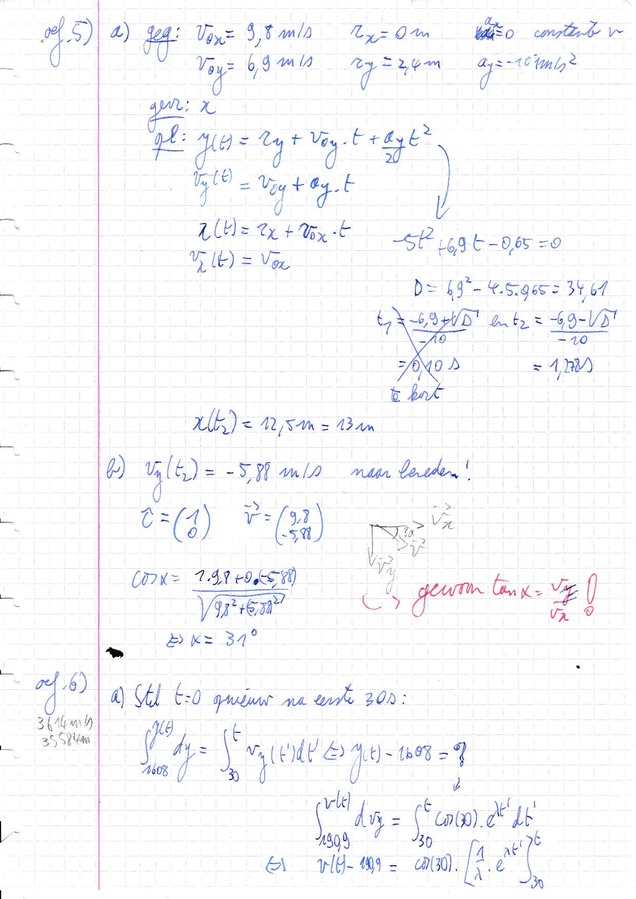 oef.5) a) geg: v₀ₓ = 9,8 m/s rₓ = 0 m aₓ = 0 constante v
v₀y = 6,9 m/s ry = 2,4 m ay = -10 m/s²
gevr: x
opl: y(t) = ry + v₀y . t + ay/2 t²
vy(t) = v₀y + ay . t
x(t) = rₓ + v₀ₓ . t
vₓ(t) = v₀ₓ
-5t² + 6,9t - 0,65 = 0
D = 6,9² - 4.5.0,65 = 34,61
t₁ = (-6,9 + √D)/-10 en t₂ = (-6,9 - √D)/-10
= 0,10 s = 1,28 s
te kort
x(t₂) = 12,5 m = 13 m
b) vy(t₂) = -5,88 m/s naar beneden!
r⃗ = (1 0) v⃗ = (9,8 -5,88)
v⃗ₓ
α
v⃗
v⃗y
cos α = (1.9,8 + 0.(-5,88))/√(9,8² + (5,88)²)
gewoon tan α = vy/vₓ !
⇔ α = 31°
oef.6) a) Stel t=0 opnieuw na eerste 30s:
3614 m/s
35584m
∫₁₆₀₈^y(t) dy = ∫₃₀^t vy(t')dt' ⇔ y(t) - 1608 = ?
∫₁₉₀,₉^v(t) dvy = ∫₃₀^t cos(30) . e^λt' dt'
⇔ v(t) - 190,9 = cos(30) . [1/λ . e^λt']₃₀^t